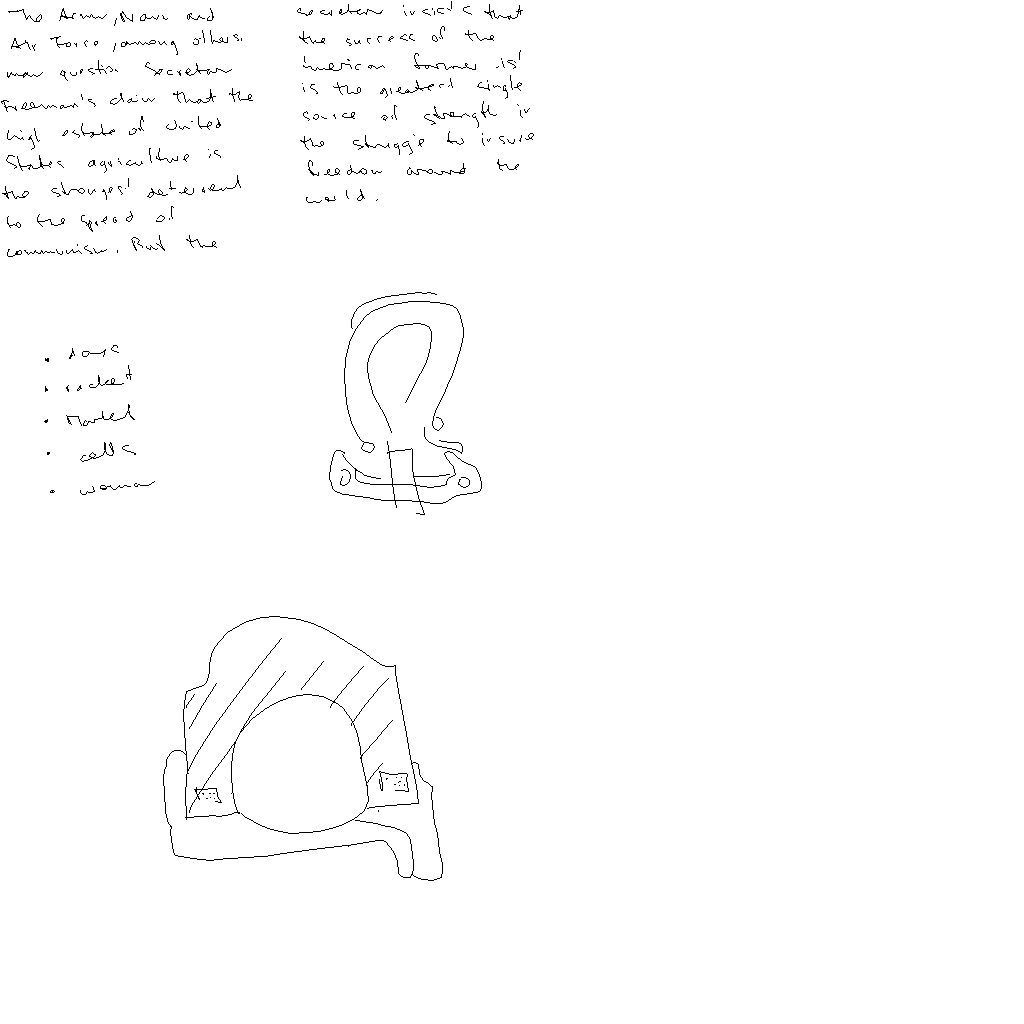 The Army, Navy and
Air Force, among others,
may question Secretary
Freeman's claim that the
high estate of United
States agriculture is
the strongest deterrent
to the spread of
communism. But the
secretary insists that
the success of the
American farmer is
is the greatest single
source of strength in
the struggle to insure
freedom around the
world.
• rocket
• Market
• cells
• woman